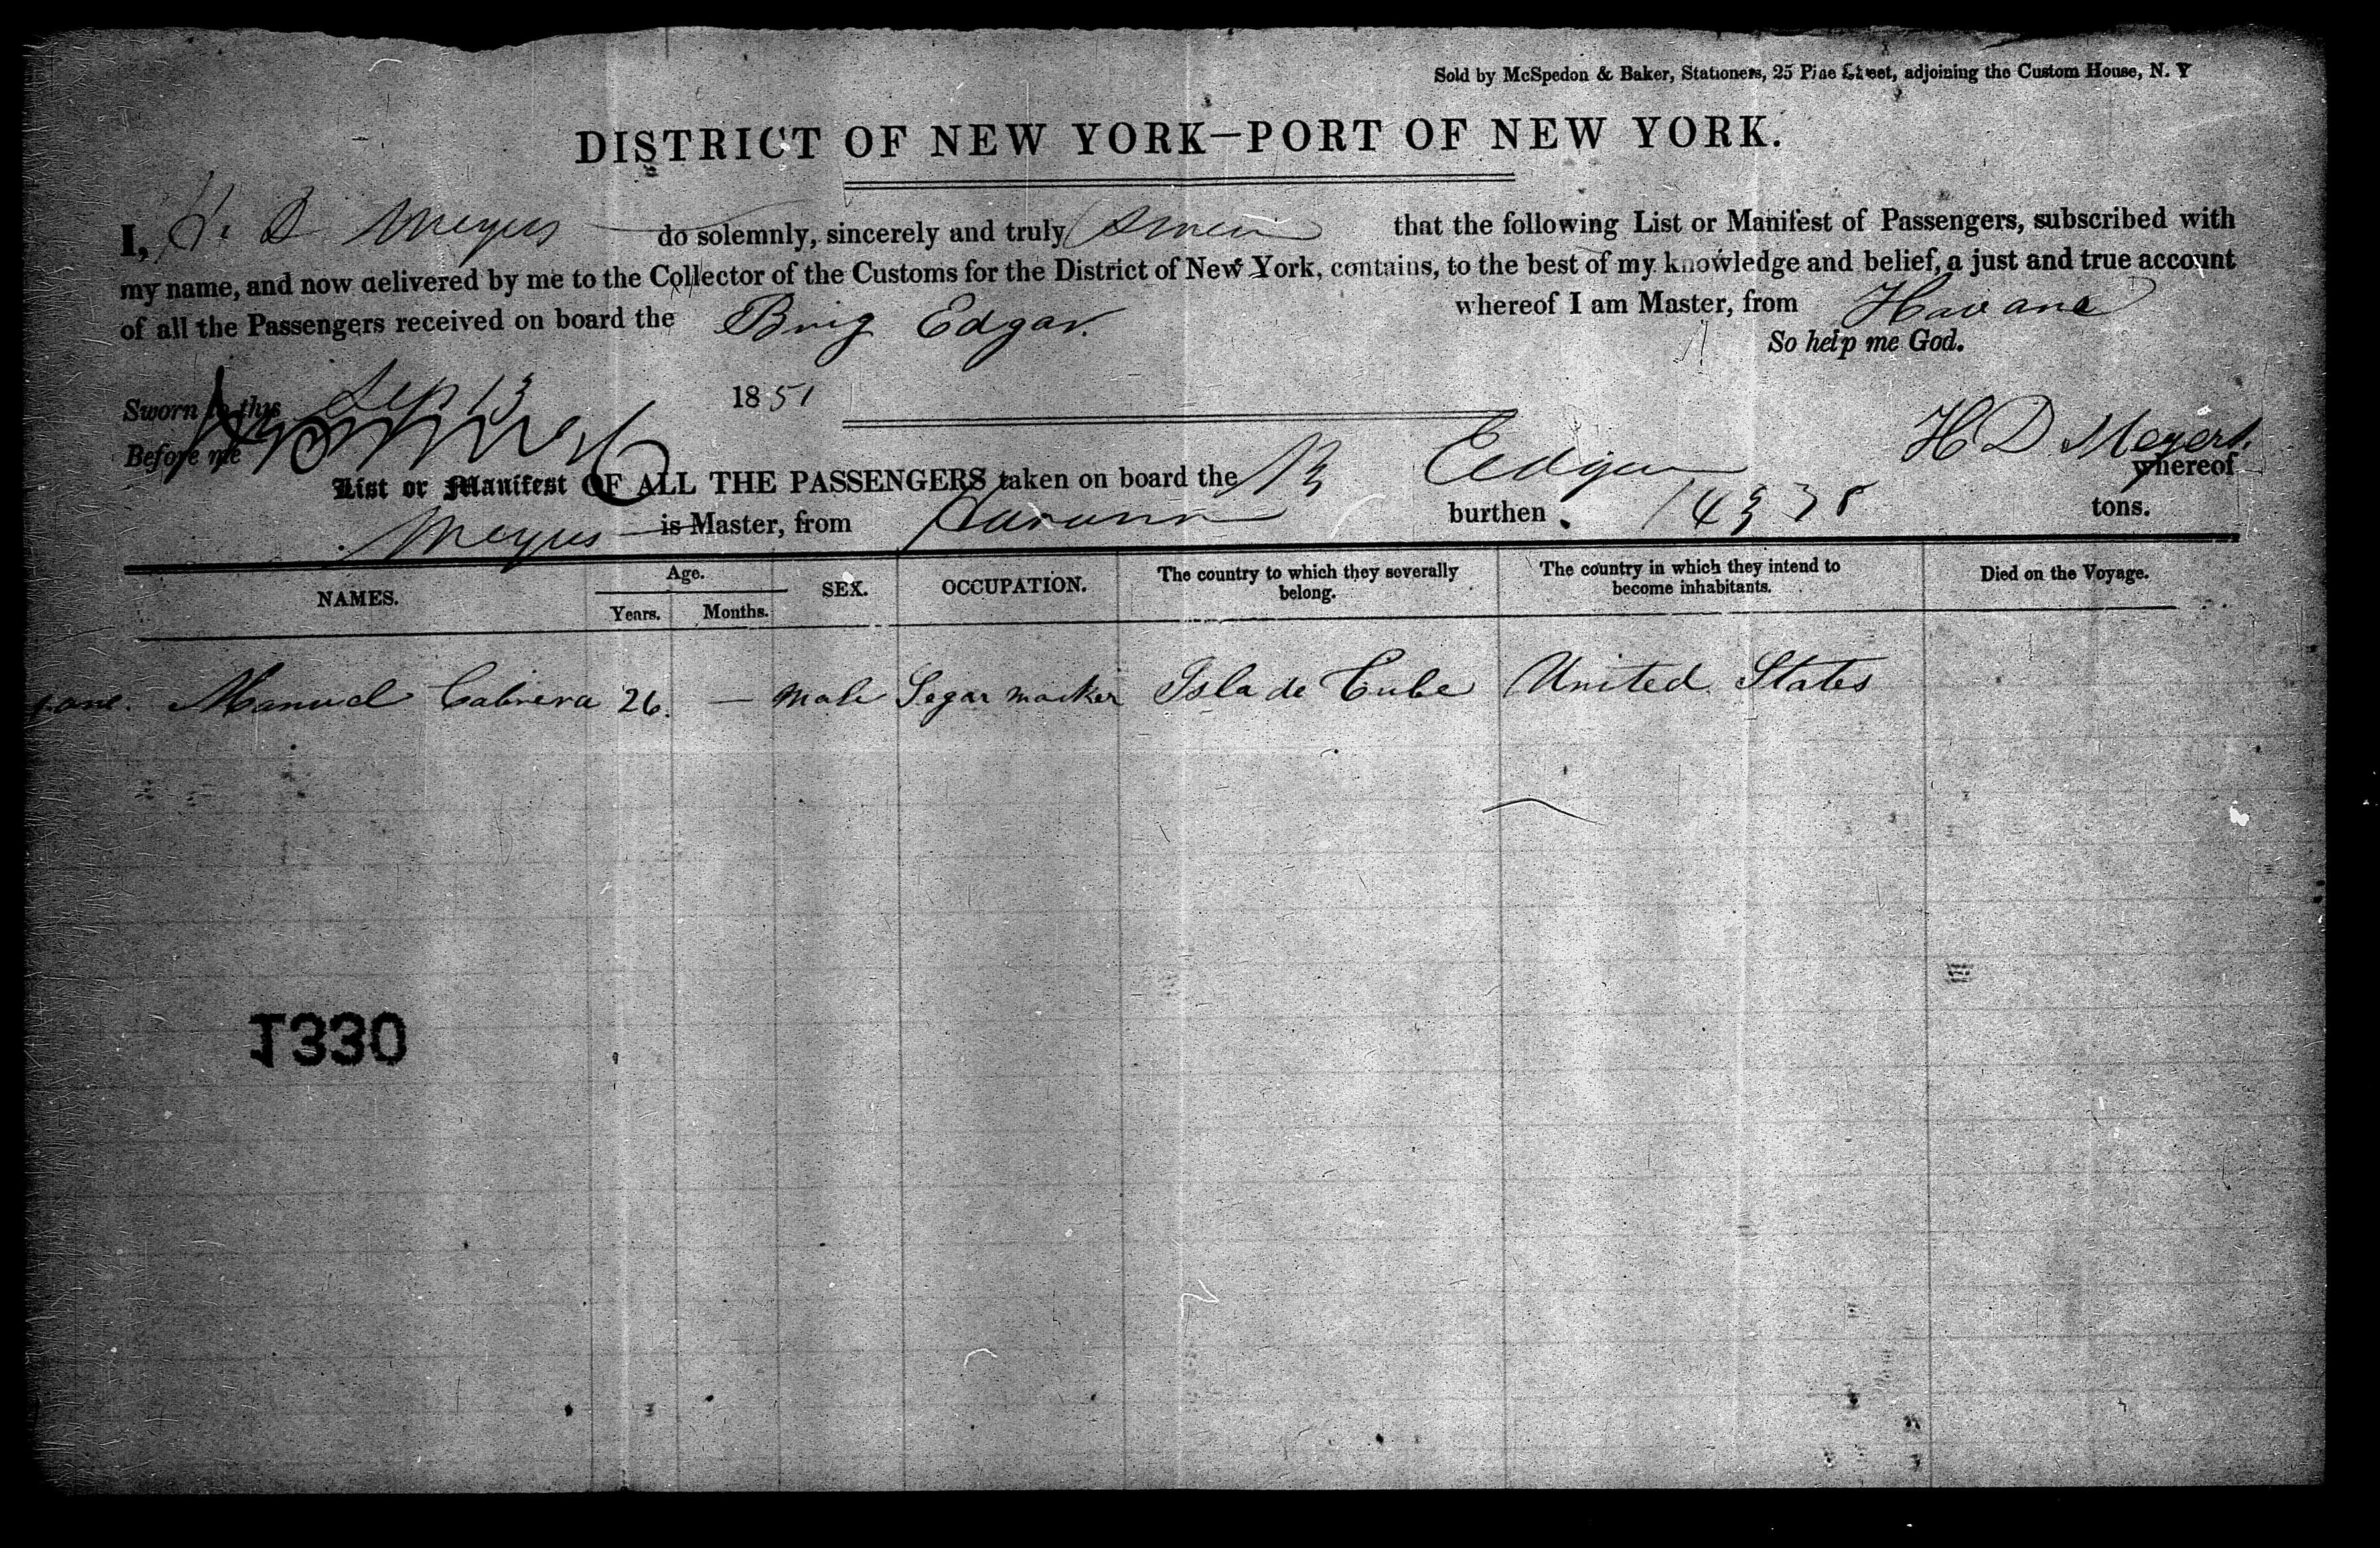 Sold by McSpedon & Baker, Stationers, 25 Pine Street, adjoining the Custom House, N. Y
DISTRICT OF NEW YORK—PORT OF NEW YORK.
I, H. D Meyers do solemnly, sincerely and truly Swear that the following List or Manifest of Passengers, subscribed with
my name, and now delivered by me to the Collector of the Customs for the District of New York, contains, to the best of my knowledge and belief, a just and true account
of all the Passengers received on board the Brig Edgar. whereof I am Master, from Havana
So help me God.
Sworn to this Sep 13 1851
Before me
H D Meyers
List or Manifest OF ALL THE PASSENGERS taken on board the B Edgar whereof
Meyers is Master, from Havana burthen tons.
NAMES. Age. Years. Months. SEX. OCCUPATION. The country to which they severally belong. The country in which they intend to become inhabitants. Died on the Voyage.
Manuel Cabrera 26. — Male Segar macker Isla de Cube United States
1330